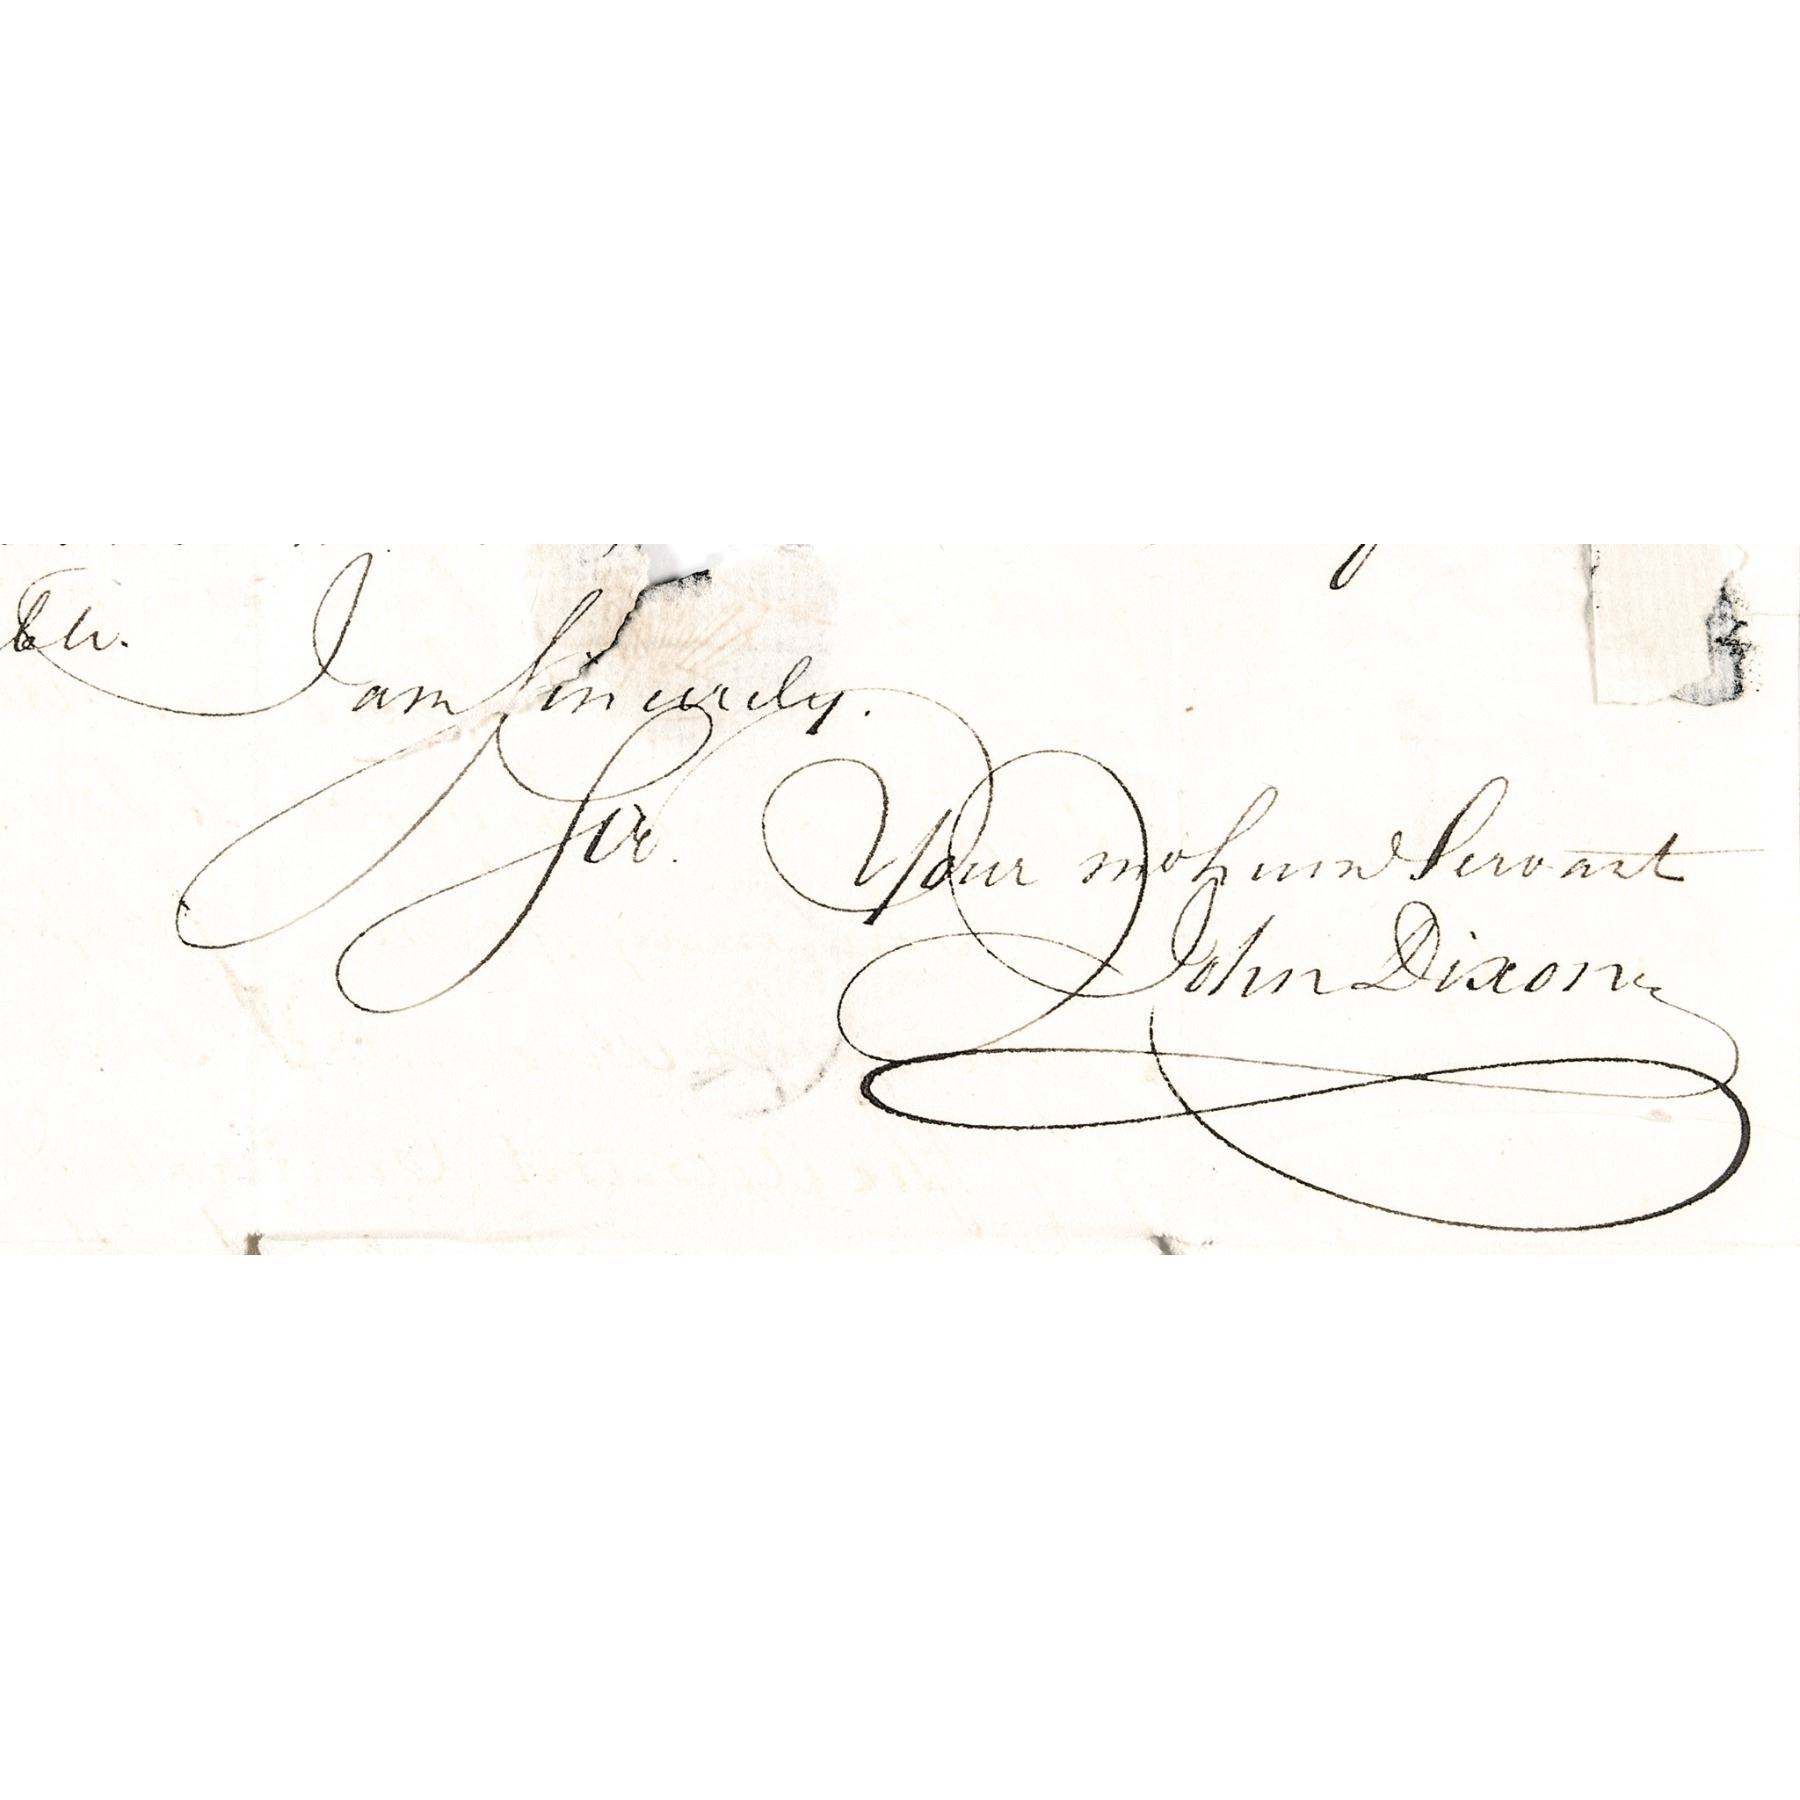 I am Sincerely.
Sir.
Your mo hum Servant
John Dixon